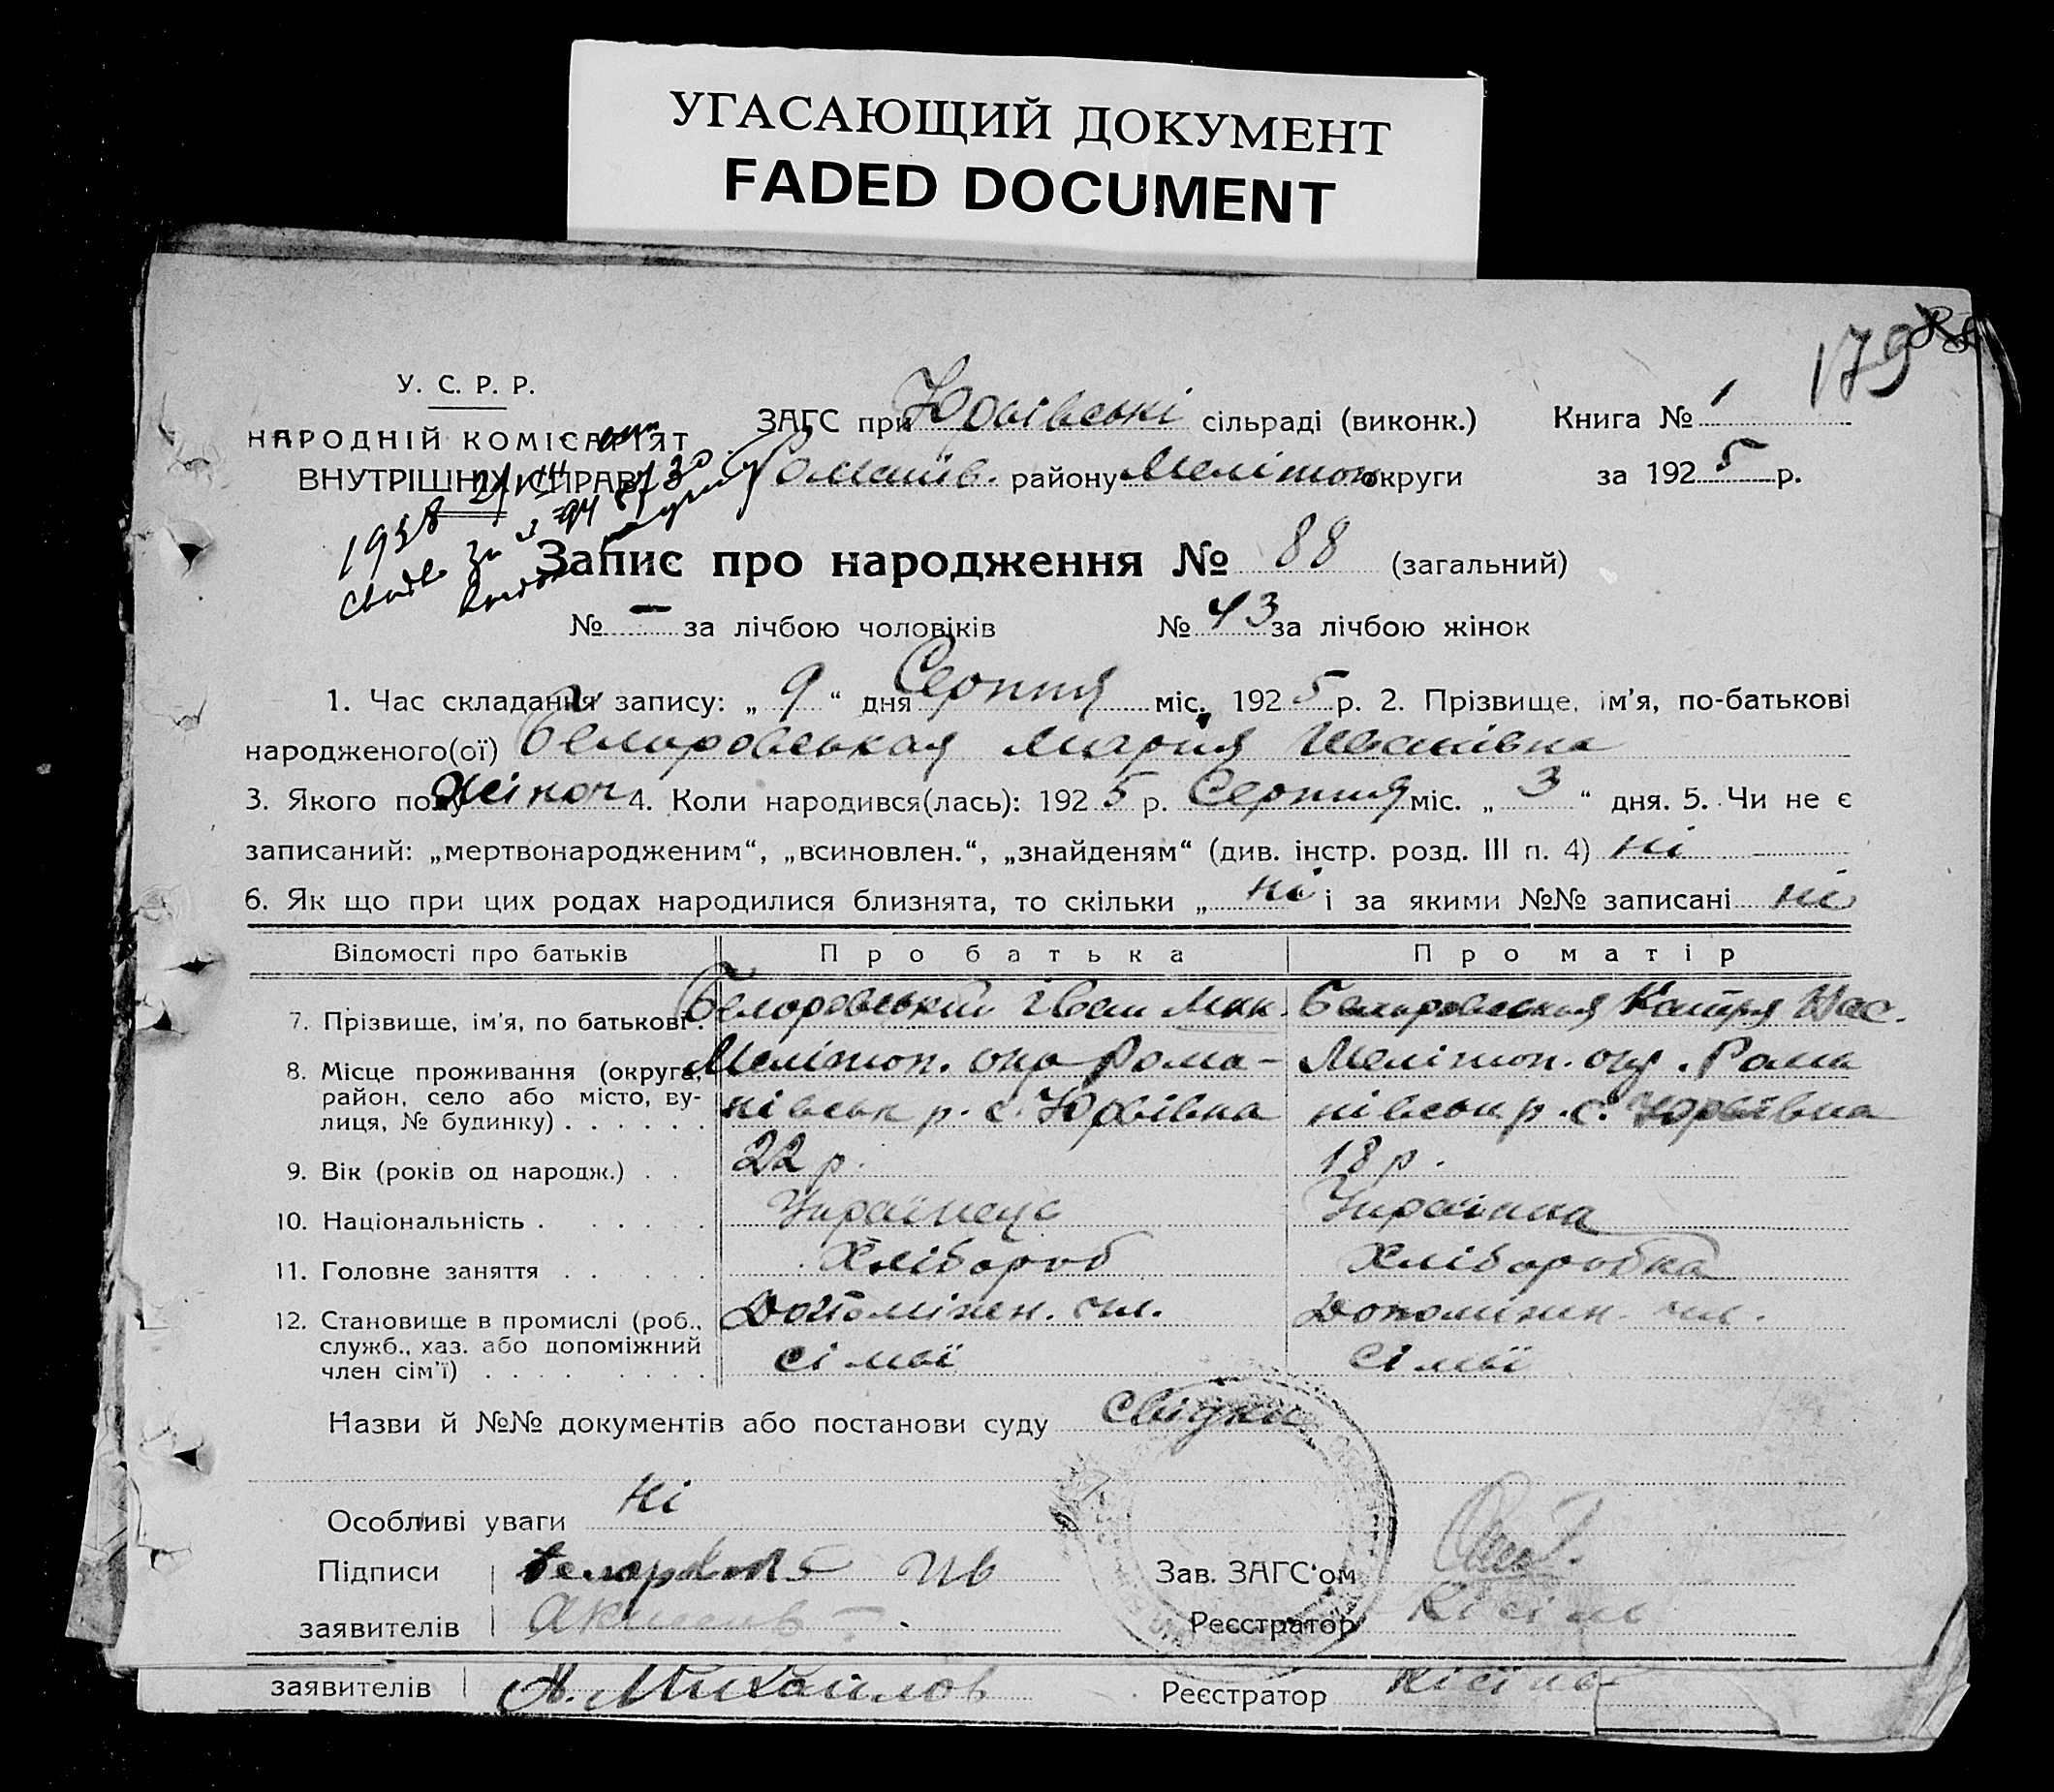 УГАСАЮЩИЙ ДОКУМЕНТ
FADED DOCUMENT
179
У. С. Р. Р.
НАРОДНІЙ КОМІСАРІЯТ
ВНУТРІШНІХ СПРАВ
ЗАГС при Юрʼівські сільраді (виконк.) Книга № 1
району Мелітоп округи за 1925 р.
1938
Запис про народження № 88 (загальний)
№ — за лічбою чоловіків № 43 за лічбою жінок
1. Час складання запису: „ 9 “ дня Серпня міс. 1925 р. 2. Прізвище, ім'я, по-батькові
народженого(ої) Мария Іванівна
3. Якого полу жіноч 4. Коли народився(лась): 1925 р. Серпня міс. „ 3 “ дня. 5. Чи не є
записаний: „мертвонародженим“, „всиновлен.“, „знайденям“ (див. інстр. розд. III п. 4) ні
6. Як що при цих родах народилися близнята, то скільки „ ні і за якими №№ записані ні
Відомості про батьків Про батька Про матір
7. Прізвище, ім'я, по батькові . Іван Мик. Катря
8. Місце проживання (округа, Мелітоп. окр Рома- Мелітоп. окр. Рома
район, село або місто, ву-
лиця, № будинку) . . . . . . нівськ р. с. Юрʼівка нівськ р. с. Юрʼївка
9. Вік (років од народж.) . . 22 р. 18 р.
10. Національність . . . . . Українець Українка
11. Головне заняття . . . . . Хлібороб Хліборобка
12. Становище в промислі (роб., Допоміжн. чл. Допоміжн. чл.
служб., хаз. або допоміжний
член сім'ї) . . . . . . . . сімьї сімьї
Назви й №№ документів або постанови суду Свідки
Особливі уваги ні
Підписи Ив Зав. ЗАГС'ом
заявителів Реєстратор Кісіль
заявителів А. Михайлов Реєстратор Кісіль